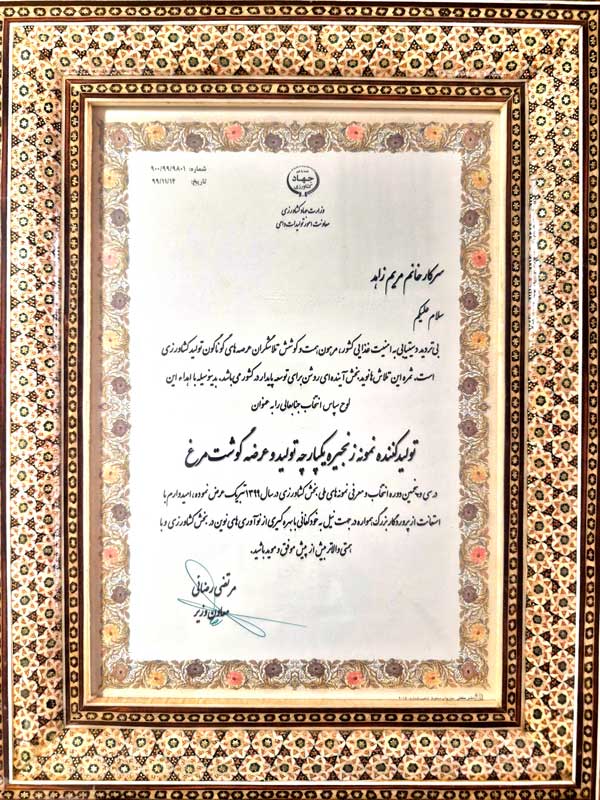 شماره: ۹۰۰/۹۹/۹۸۰۱
تاریخ: ۹۹/۱۱/۱۴
جهاد
کشاورزی
وزارت جهاد کشاورزی
معاونت امور تولیدات دامی
سرکار خانم مریم زاهد
سلام علیکم
بی‌تردید دستیابی به امنیت غذایی کشور، مرهون همت و کوشش تلاشگران عرصه‌های گوناگون تولید کشاورزی
است. ثمره این تلاش‌ها نوید بخش آینده‌ای روشن برای توسعه پایدار در کشور می‌باشد. بدینوسیله با اهداء این
لوح سپاس انتخاب جنابعالی را به عنوان
تولیدکننده نمونه زنجیره یکپارچه تولید و عرضه گوشت مرغ
در سی و پنجمین دوره انتخاب و معرفی نمونه‌های ملی بخش کشاورزی در سال ۱۳۹۹ تبریک عرض نموده، امیدوارم با
استعانت از پروردگار بزرگ همواره در جهت نیل به خودکفائی با بهره گیری از نوآوری‌های نوین در بخش کشاورزی و با
همتی والاتر بیش از پیش موفق و موید باشید.
مرتضی رضائی
معاون وزیر